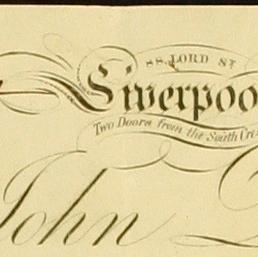 LORD ST
Liverpoo
Two Doors from the South Cr
John